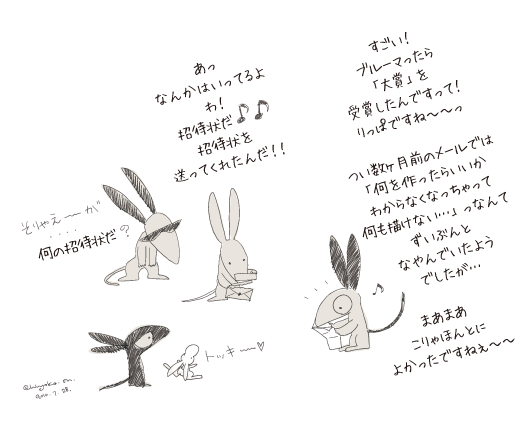 すごい!
ブルーマったら
「大賞」を
受賞したんですって!
りっぱですね〜〜っ
つい数ヶ月前のメールでは
「何を作ったらいいか
わからなくなっちゃって
何も描けない…」っなんて
ずいぶんと
なやんでいたよう
でしたが…
まあまあ
こりゃほんとに
よかったですねぇ〜〜
あっ
なんかはいってるよ
わ!
招待状だ♪♪
招待状を
送ってくれたんだ!!
そりゃえーが
....
何の招待状だ?
トッキー♡